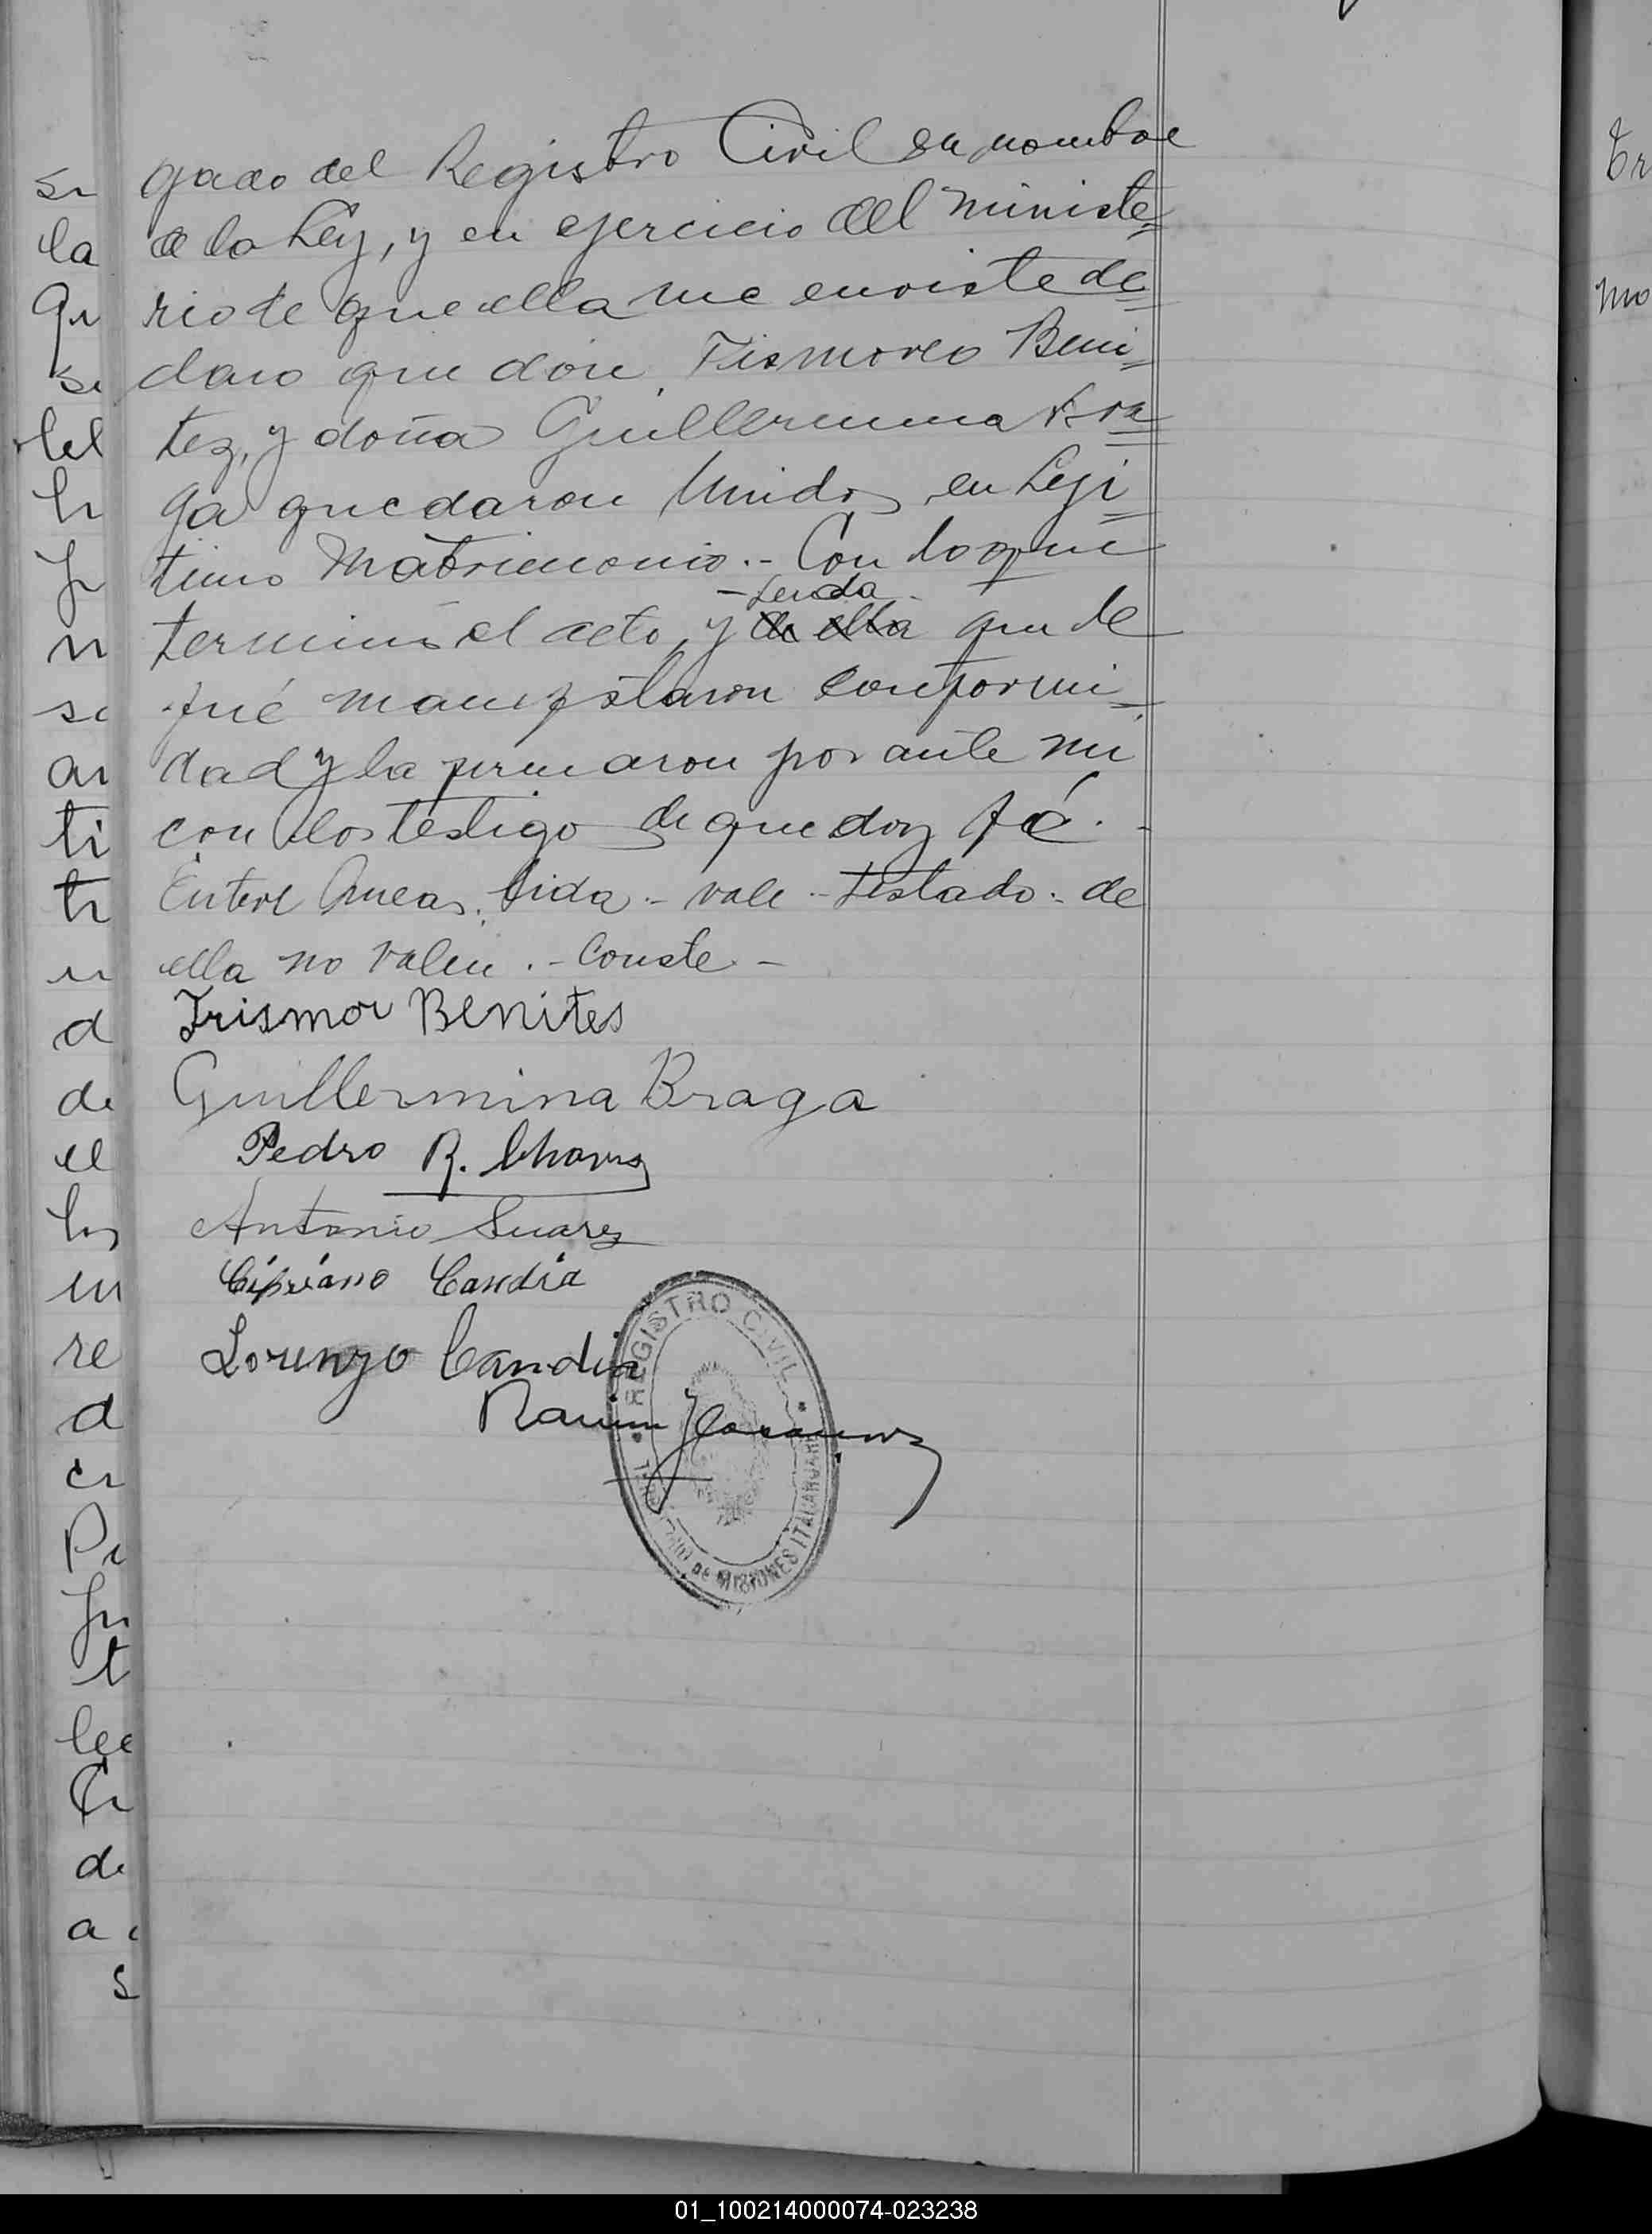 gado del Registro Civil en nombre
de la Ley, y en ejercicio del ministe=
rio de que ella me enviste de=
claro que don Tismoreo Beni=
tez, y doña Guillermina Bra=
ga quedaron Unidos en Legi=
timo Matrimonio.- Con lo que
-Leida-
terminó el acto, y de ella que le
fué manifestaron conformi=
dad y la firmaron por ante mi
con los testigo de que doy fé.-
Entre lineas: lida.- vale.- testado:- de
ella no valen.- Conste-
Trismor Benites
Guillermina Braga
Pedro R. Chaves
Antonio Suarez
Cipriano Candia
Lorenzo Candia
Ramon
REGISTRO CIVIL
DE MISIONES ITACARUARE
si
la
qu
se
del
h
f
n
se
ar
ti
tr
u
d
de
el
los
in
re
d
cr
Pr
fu
t
lee
Cr
de
a
s
Er
mo
01_100214000074-023238